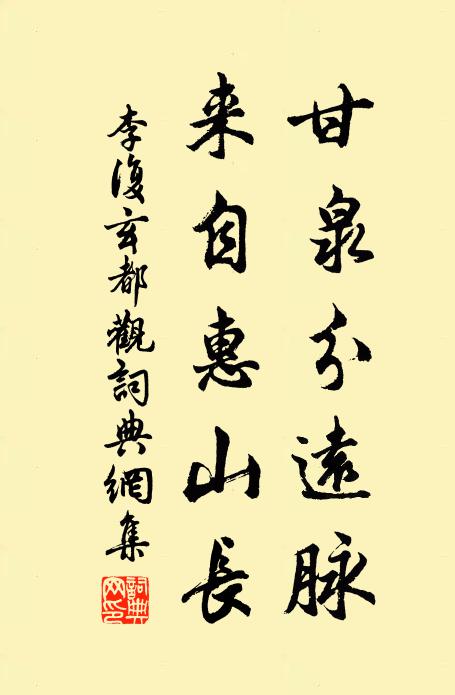 甘泉分遠脉
来自惠山長
李復玄都觀詞典網集
詞典网印